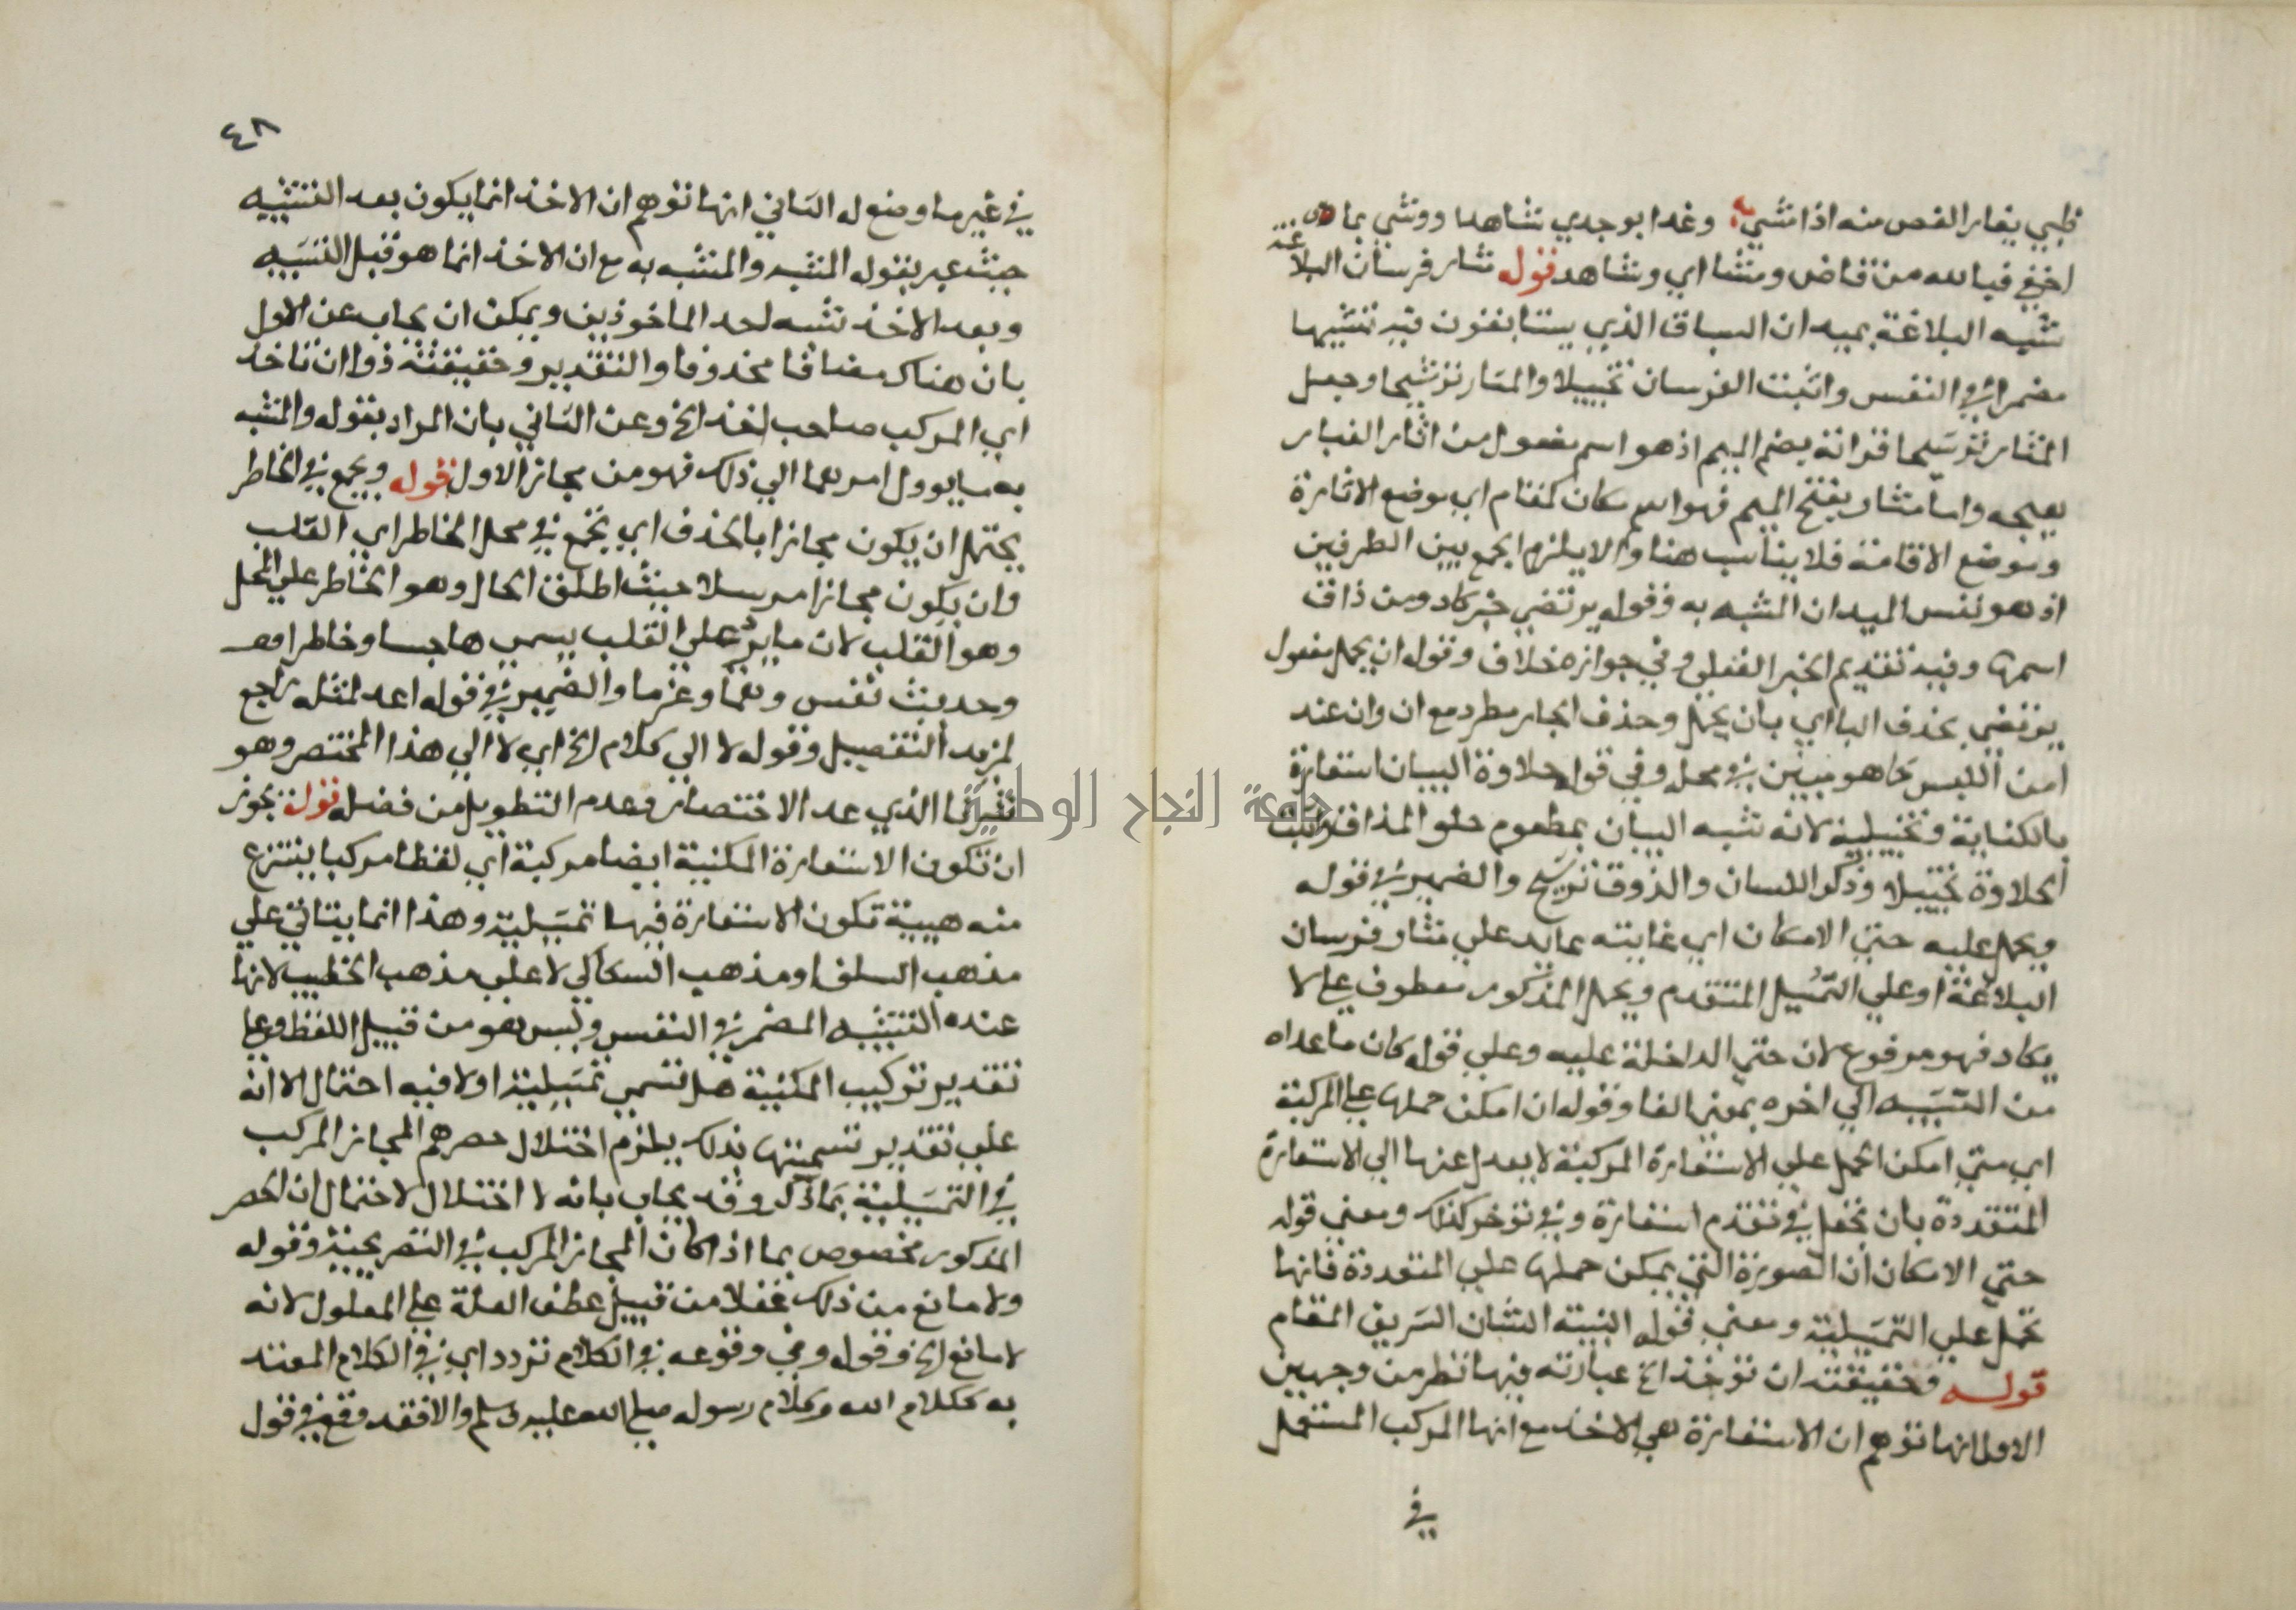 ظبي يغار الغصن منه اذا مشي وغدا بوجدي شاهدا ووشي بما
اخفي فيا لله من قاض ومشا اي وشاهد قوله مثار فرسان البلاغة
شبه البلاغة بميدان السباق الذي يتسابقون فيه تشبيها
مضمرا في النفس واثبت الفرسان تخييلا والمثار ترشيحا وجعل
المثار ترشيحا قرانه بضم الميم اذ هو اسم مفعول من اثار الغبار
يهيجه واما مثار بفتح الميم فهو اسم مكان كمقام اي موضع الاثارة
وموضع الاقامة فلا يناسب هنا والا يلزم الجمع بين الطرفين
اذ هو نفس الميدان المشبه به وقوله يرتضي خبر كاد ومن ذاق
اسمها وفيه تقديم الخبر الفعلي وفي جوازه خلاف وقوله ان يحمل مفعول
يرتضي بحذف البا اي بان يحمل وحذف الجار مطرد مع ان وان عند
امن اللبس كما هو مبين في محله وفي قوله حلاوة البيان استعارة
بالكناية وتخييلية لانه شبه البيان بمطعوم حلو المذاق واثبت
الحلاوة تخييلا وذكر اللسان والذوق ترشيح والضمير في قوله
ويحمل عليه حتي الامكان اي غايته عايد علي مثار فرسان
البلاغة او علي التمثيل المتقدم ويحمل المذكور معطوف علي لا
يكاد فهو مرفوع لان حتي الداخلة عليه وعلي قوله كان ما عداه
من التشبيه الي اخره بمعني الفا وقوله ان امكن حملها علي المركبة
اي متي امكن الحمل علي الاستعارة المركبة لا يعدل عنها الي الاستعارة
المتعددة بان تجعل في تقدم استعارة وفي تؤخر كذلك ومعني قوله
حتي الامكان ان الصورة التي يمكن حملها علي المتعددة فانها
تحمل علي التمثيلية ومعني قوله البتة الشان الشريف المقام
قوله وحقيقته ان توخذ الخ عبارته فيها نظر من وجهين
الاول انها توهم ان الاستعارة هي الاخذ مع انها المركب المستعمل
في
٤٨
في غير ما وضع له الثاني انها توهم ان الاخذ انما يكون بعد التشبيه
حيث عبر بقوله المشبه والمشبه به مع ان الاخذ انما هو قبل التشبيه
وبعد الاخذ تشبه احد الماخوذين ويمكن ان يجاب عن الاول
بان هناك مضافا محذوفا والتقدير وحقيقته ذو ان تاخذ
اي المركب صاحب اخذ الخ وعن الثاني بان المراد بقوله والمشبه
به ما يوول امرهما الي ذلك فهو من مجاز الاول قوله ويجمع في الخاطر
يحتمل ان يكون مجازا بالحذف اي تجمع في محل الخاطر اي القلب
وان يكون مجازا مرسلا حيث اطلق الحال وهو الخاطر علي المحل
وهو القلب لان ما يرد علي القلب يسمي هاجسا وخاطرا
وحديث نفس وهما وعزما والضمير في قوله اعد لمثله راجع
لمزيد التفصيل وقوله لا الي كلام الخ اي لا الي هذا المختصر وهو
الذي عد الاختصار وعدم التطويل من فضله قوله تجوز
ان تكون الاستعارة المكنية ايضا مركبة اي لفظا مركبا ينتزع
منه هيية تكون الاستعارة فيها تمثيلية وهذا انما يتاتي علي
مذهب السلف او مذهب السكاكي لا علي مذهب الخطيب لانها
عنده التشبيه المضمر في النفس وليس هو من قبيل اللفظ وعلي
تقدير تركيب المكنية هل تسمي تمثيلية او لا فيه احتمال الا انه
علي تقدير تسميتها بذلك يلزم اختلال حصرهم المجاز المركب
في التمثيلية بما ذكر وقد يجاب بانه لا اختلال لاحتمال ان الحصر
المذكور مخصوص بما اذا كان المجاز المركب في التصريحية وقوله
ولا مانع من ذلك عقلا من قبيل عطف العلة علي المعلول لانه
لا مانع الخ وقوله وفي وقوعه في الكلام تردد اي في الكلام المعتد
به ككلام الله وكلام رسوله صلي الله عليه وسلم والا فقد وقع في قول
جامعة النجاح الوطنية